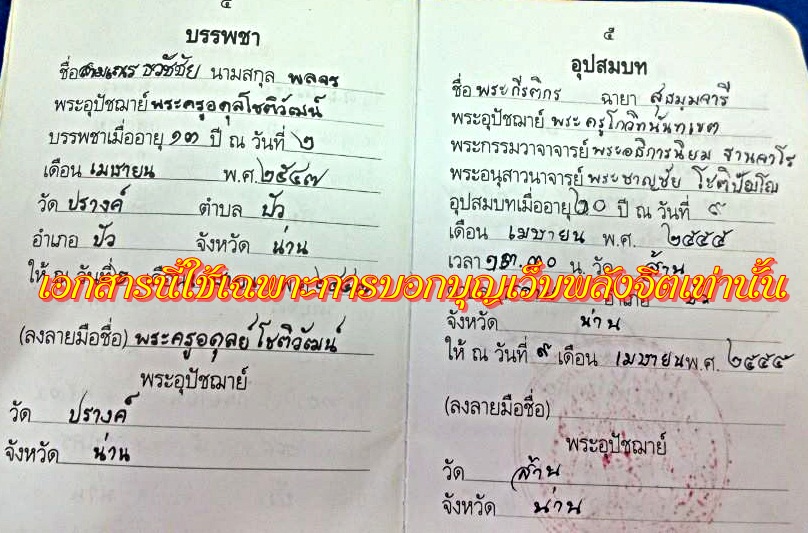 ๔
บรรพชา
ชื่อ สามเณร ธวัชชัย นามสกุล พลจร
พระอุปัชฌาย์ พระครูอดุลโชติวัฒน์
บรรพชาเมื่ออายุ ๑๓ ปี ณ วันที่ ๒
เดือน เมษายน พ.ศ. ๒๕๔๗
วัด ปรางค์ ตำบล ปัว
อำเภอ ปัว จังหวัด น่าน
ให้ ณ วันที่
(ลงลายมือชื่อ) พระครูอดุลย์โชติวัฒน์
พระอุปัชฌาย์
วัด ปรางค์
จังหวัด น่าน
๕
อุปสมบท
ชื่อ พระกีรติกร ฉายา
พระอุปัชฌาย์ พระครูโกวิทนันทเขต
พระกรรมวาจาจารย์ พระอธิการนิยม ฐานจาโร
พระอนุสาวนาจารย์ พระชาญชัย
อุปสมบทเมื่ออายุ ๒๐ ปี ณ วันที่ ๙
เดือน เมษายน พ.ศ. ๒๕๕๕
เวลา ๑๓.๓๐ น. วัด ส้าน
จังหวัด น่าน
ให้ ณ วันที่ ๙ เดือน เมษายน พ.ศ. ๒๕๕๕
(ลงลายมือชื่อ)
พระอุปัชฌาย์
วัด ส้าน
จังหวัด น่าน
เอกสารนี้ใช้เฉพาะการบอกบุญเว็บพลังจิตเท่านั้น